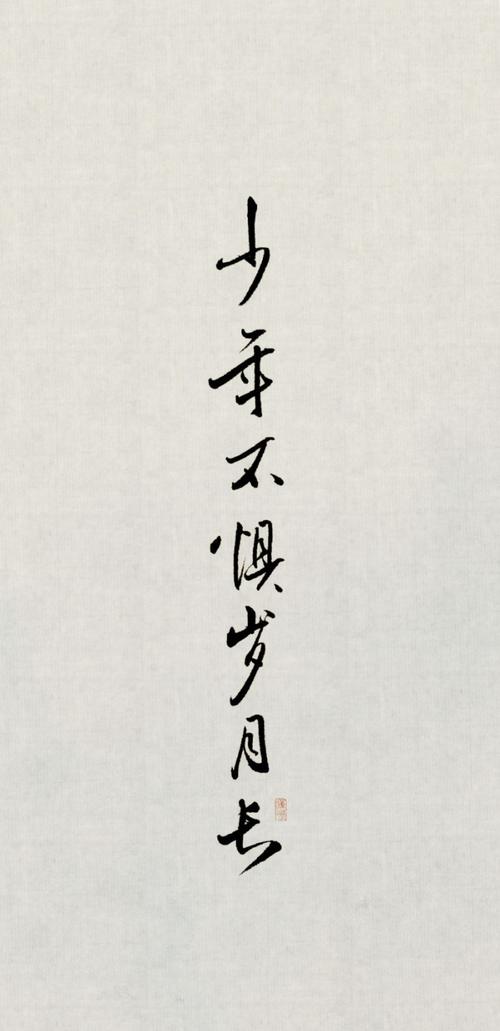 少年不惧岁月长